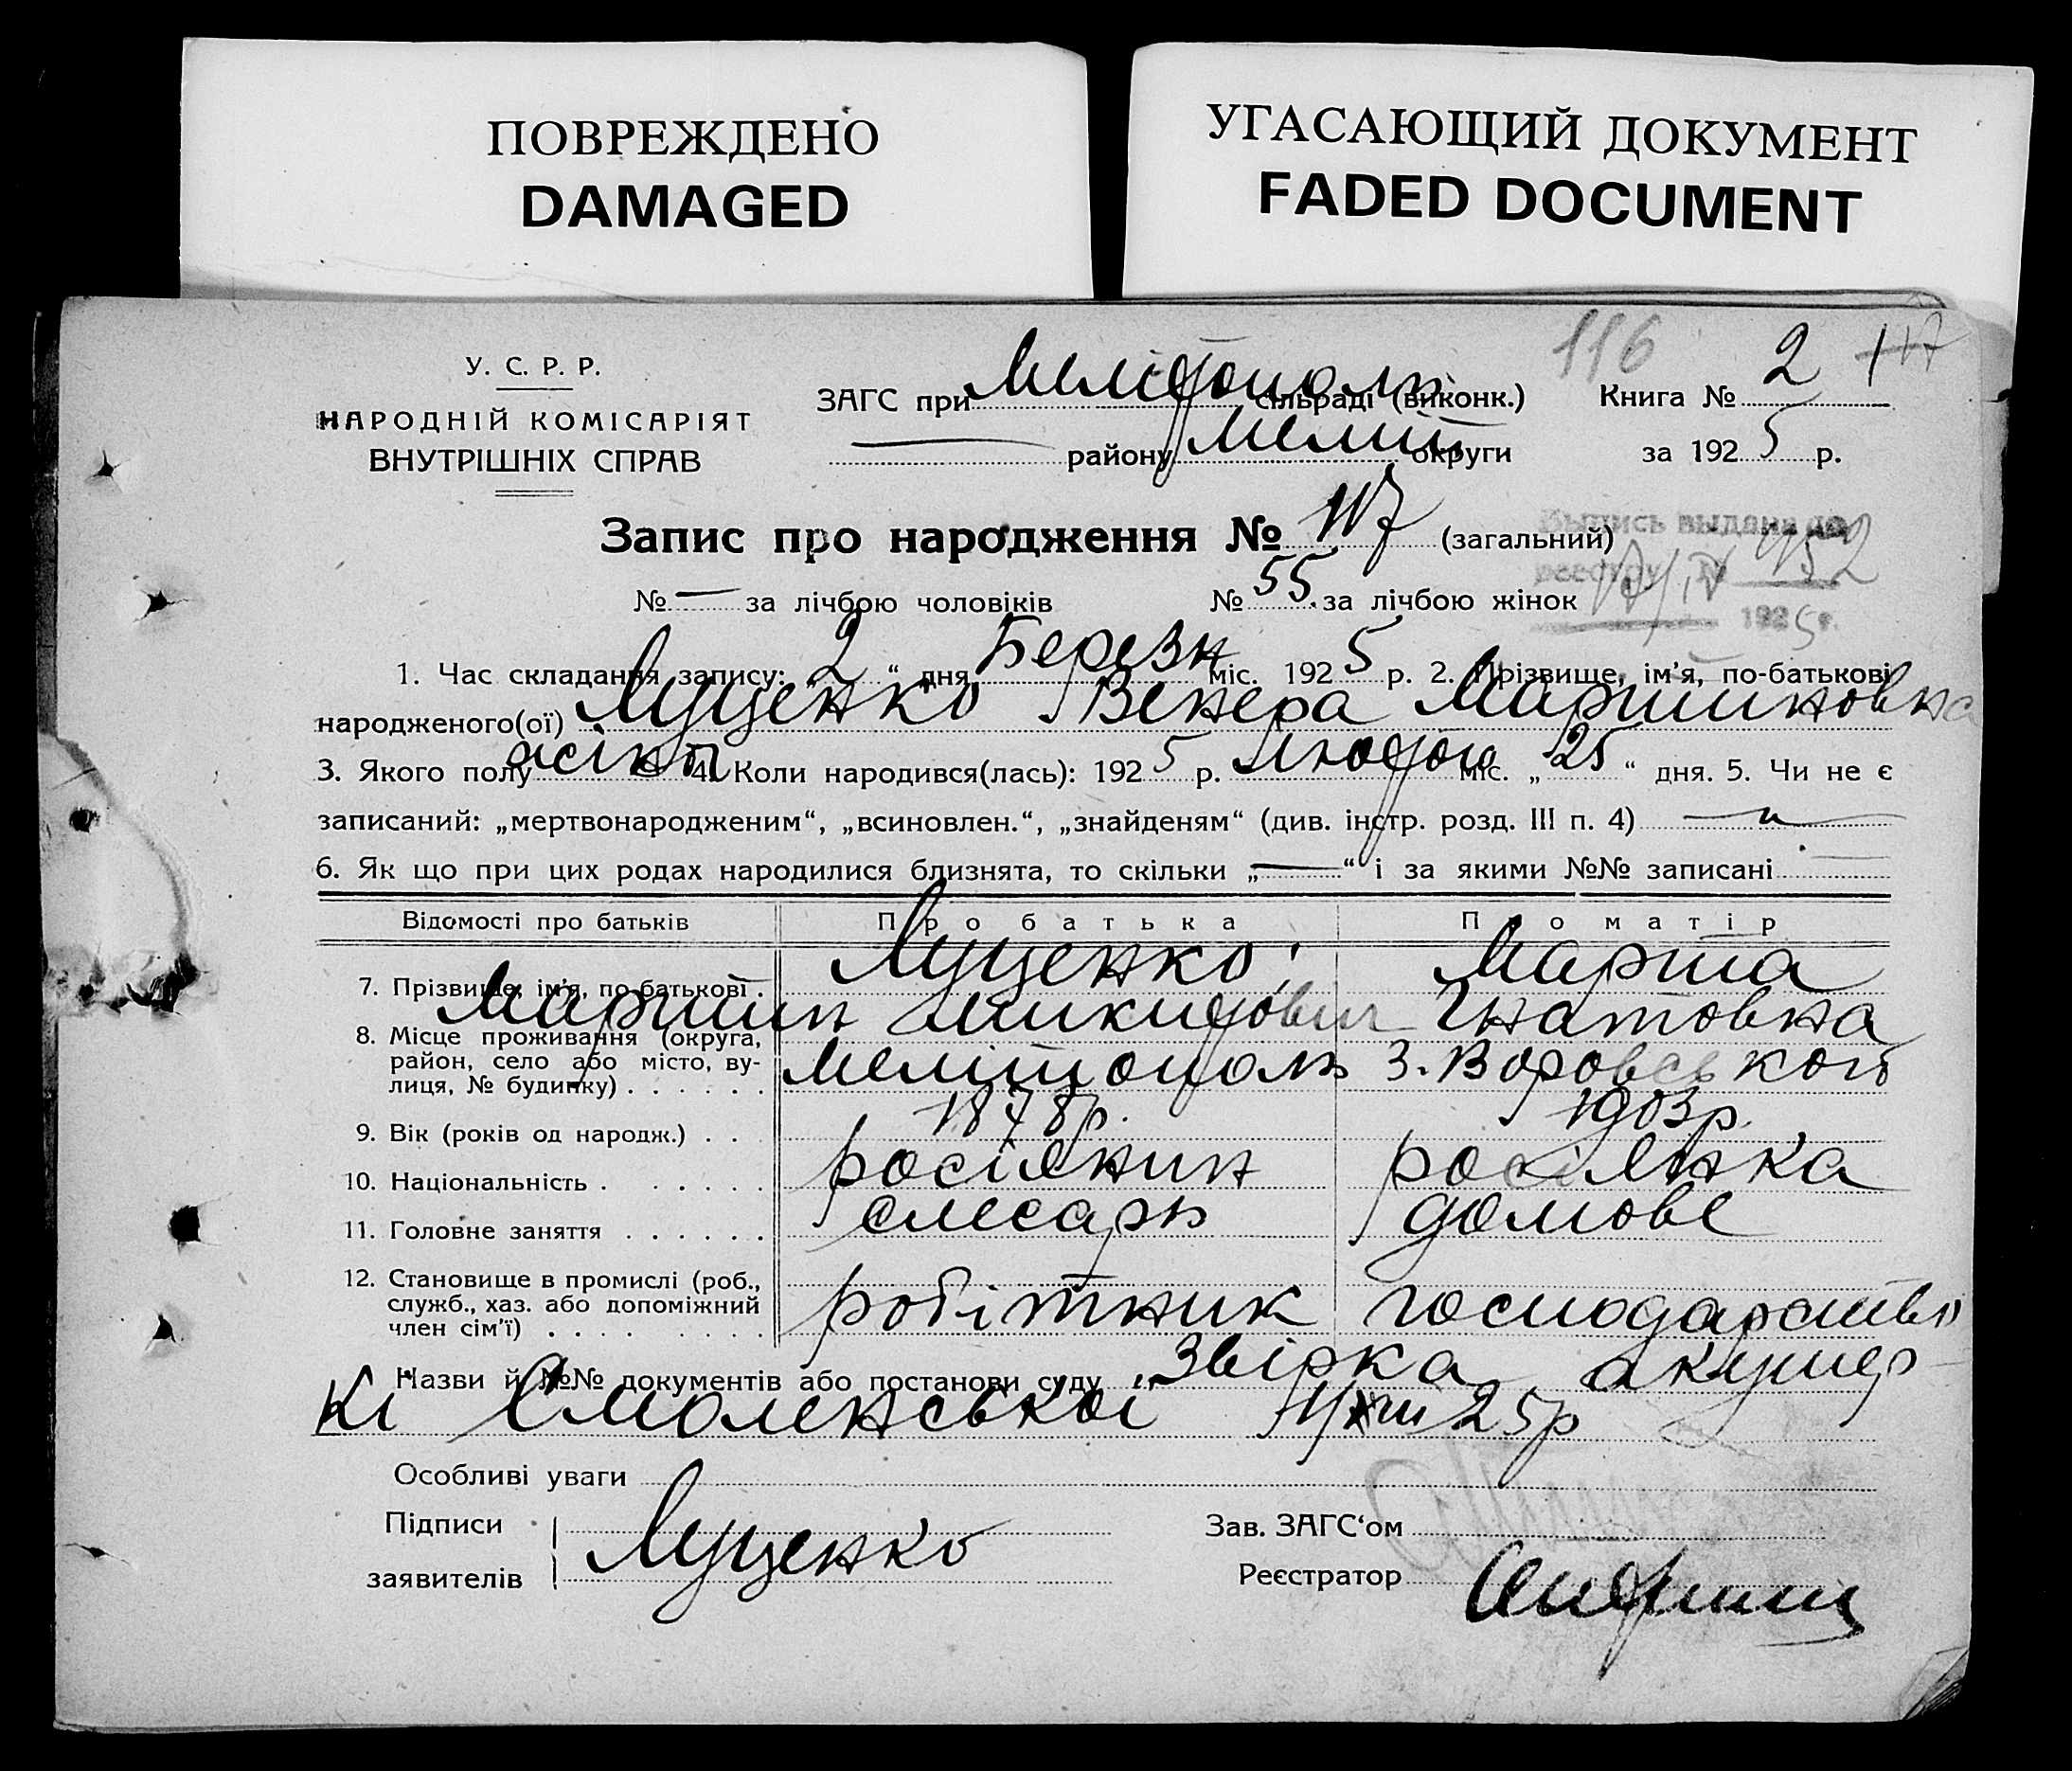 ПОВРЕЖДЕНО
DAMAGED
УГАСАЮЩИЙ ДОКУМЕНТ
FADED DOCUMENT
116
У. С. Р. Р.
НАРОДНІЙ КОМІСАРІЯТ
ВНУТРІШНІХ СПРАВ
ЗАГС при Мелітополь сільраді (виконк.)
— району Меліт округи
Книга № 2 117
за 1925 р.
Запис про народження № 117 (загальний)
№ — за лічбою чоловіків № 55. за лічбою жінок
Выпись выдана
952
1925 г.
1. Час складання запису: 2 “ дня Березн міс. 1925 р. 2. Прізвище, ім’я, по-батькові
народженого(ої) Луценко Венера Мартиновна
3. Якого полу жіноч 4. Коли народився(лась): 1925 р. Лютого міс. „ 25 “ дня. 5. Чи не є
записаний: „мертвонародженим“, „всиновлен.“, „знайденям“ (див. інстр. розд. III п. 4)
6. Як що при цих родах народилися близнята, то скільки „—“ і за якими №№ записані —
Відомості про батьків Про батька Про матір
7. Прізвище, ім’я, по-батькові . Луценко; Марта
Мартин Микитович Гнатовна
8. Місце проживання (округа,
район, село або місто, ву-
лиця, № будинку) . . . . . . Мелітополь З. Воровського
9. Вік (років од народж.) . . 1878р. 1903р.
10. Національність . . . . . . росіянин росіянка
11. Головне заняття . . . . . . слесарь домове
12. Становище в промислі (роб.,
служб., хаз. або допоміжний
член сім’ї) . . . . . . . . робітник господарство
Назви й №№ документів або постанови суду Звірка акушер-
кі Смоленської 25р
Особливі уваги
Підписи
заявителів Луценко
Зав. ЗАГС‘ом
Реєстратор